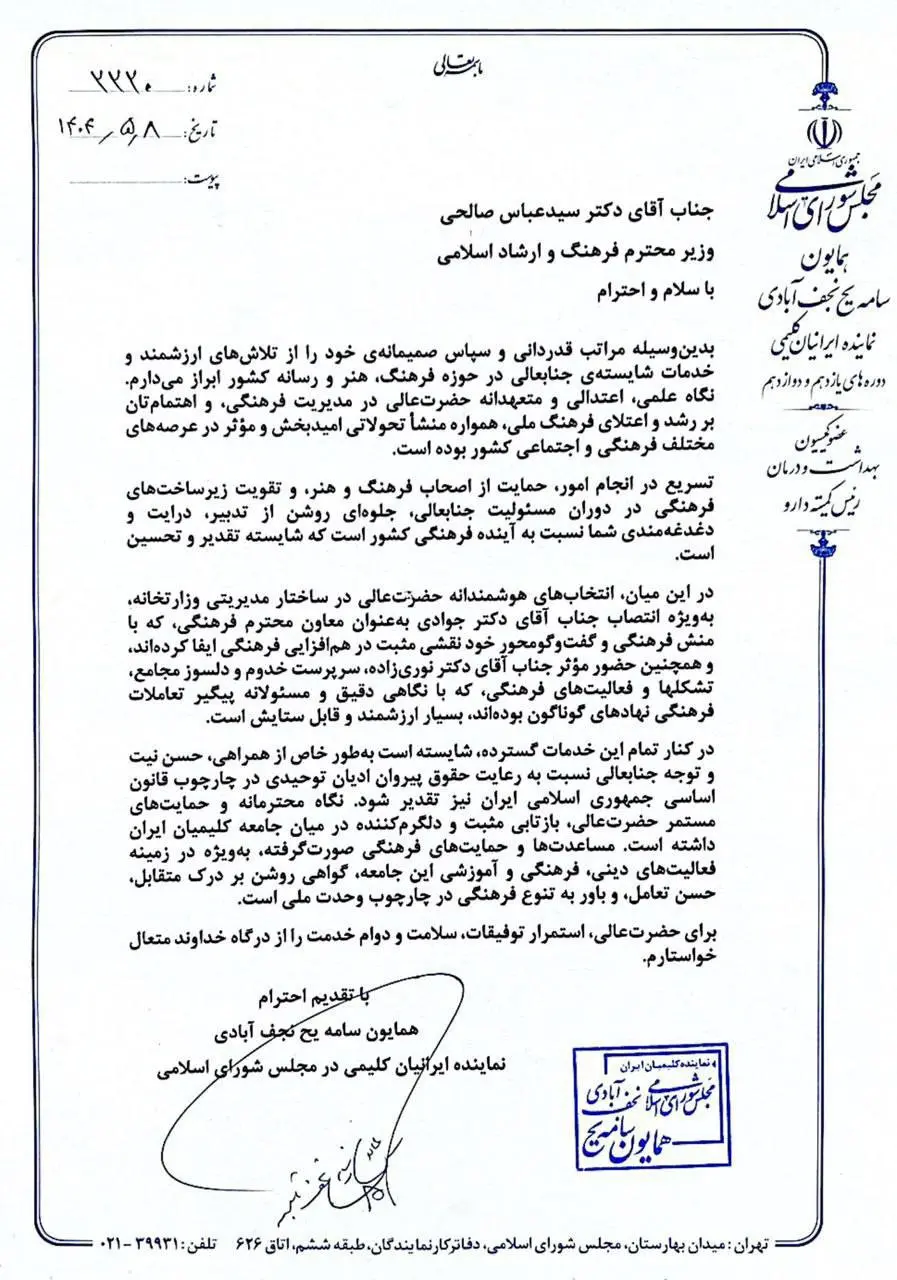 باسمه تعالی
شماره: ۲۲۲۰
تاریخ: ۱۴۰۴/۵/۸
پیوست:
جمهوری اسلامی ایران
مجلس شورای اسلامی
همایون
سامه یح نجف آبادی
نماینده ایرانیان کلیمی
دوره های یازدهم و دوازدهم
عضو کمیسیون
بهداشت و درمان
رئیس کمیته دارو
جناب آقای دکتر سیدعباس صالحی
وزیر محترم فرهنگ و ارشاد اسلامی
با سلام و احترام
بدین‌وسیله مراتب قدردانی و سپاس صمیمانه‌ی خود را از تلاش‌های ارزشمند و
خدمات شایسته‌ی جنابعالی در حوزه فرهنگ، هنر و رسانه کشور ابراز می‌دارم.
نگاه علمی، اعتدالی و متعهدانه حضرت‌عالی در مدیریت فرهنگی، و اهتمام‌تان
بر رشد و اعتلای فرهنگ ملی، همواره منشأ تحولاتی امیدبخش و مؤثر در عرصه‌های
مختلف فرهنگی و اجتماعی کشور بوده است.
تسریع در انجام امور، حمایت از اصحاب فرهنگ و هنر، و تقویت زیرساخت‌های
فرهنگی در دوران مسئولیت جنابعالی، جلوه‌ای روشن از تدبیر، درایت و
دغدغه‌مندی شما نسبت به آینده فرهنگی کشور است که شایسته تقدیر و تحسین
است.
در این میان، انتخاب‌های هوشمندانه حضرت‌عالی در ساختار مدیریتی وزارتخانه،
به‌ویژه انتصاب جناب آقای دکتر جوادی به‌عنوان معاون محترم فرهنگی، که با
منش فرهنگی و گفت‌وگومحور خود نقشی مثبت در هم‌افزایی فرهنگی ایفا کرده‌اند،
و همچنین حضور مؤثر جناب آقای دکتر نوری‌زاده، سرپرست خدوم و دلسوز مجامع،
تشکلها و فعالیت‌های فرهنگی، که با نگاهی دقیق و مسئولانه پیگیر تعاملات
فرهنگی نهادهای گوناگون بوده‌اند، بسیار ارزشمند و قابل ستایش است.
در کنار تمام این خدمات گسترده، شایسته است به‌طور خاص از همراهی، حسن نیت
و توجه جنابعالی نسبت به رعایت حقوق پیروان ادیان توحیدی در چارچوب قانون
اساسی جمهوری اسلامی ایران نیز تقدیر شود. نگاه محترمانه و حمایت‌های
مستمر حضرت‌عالی، بازتابی مثبت و دلگرم‌کننده در میان جامعه کلیمیان ایران
داشته است. مساعدت‌ها و حمایت‌های فرهنگی صورت‌گرفته، به‌ویژه در زمینه
فعالیت‌های دینی، فرهنگی و آموزشی این جامعه، گواهی روشن بر درک متقابل،
حسن تعامل، و باور به تنوع فرهنگی در چارچوب وحدت ملی است.
برای حضرت‌عالی، استمرار توفیقات، سلامت و دوام خدمت را از درگاه خداوند متعال
خواستارم.
با تقدیم احترام
همایون سامه یح نجف آبادی
نماینده ایرانیان کلیمی در مجلس شورای اسلامی
نماینده کلیمیان ایران
مجلس شورای اسلامی
نجف آبادی
همایون سامه یح
تهران: میدان بهارستان، مجلس شورای اسلامی، دفاتر کار نمایندگان، طبقه ششم، اتاق ۶۲۶ تلفن: ۳۹۹۳۱-۰۲۱